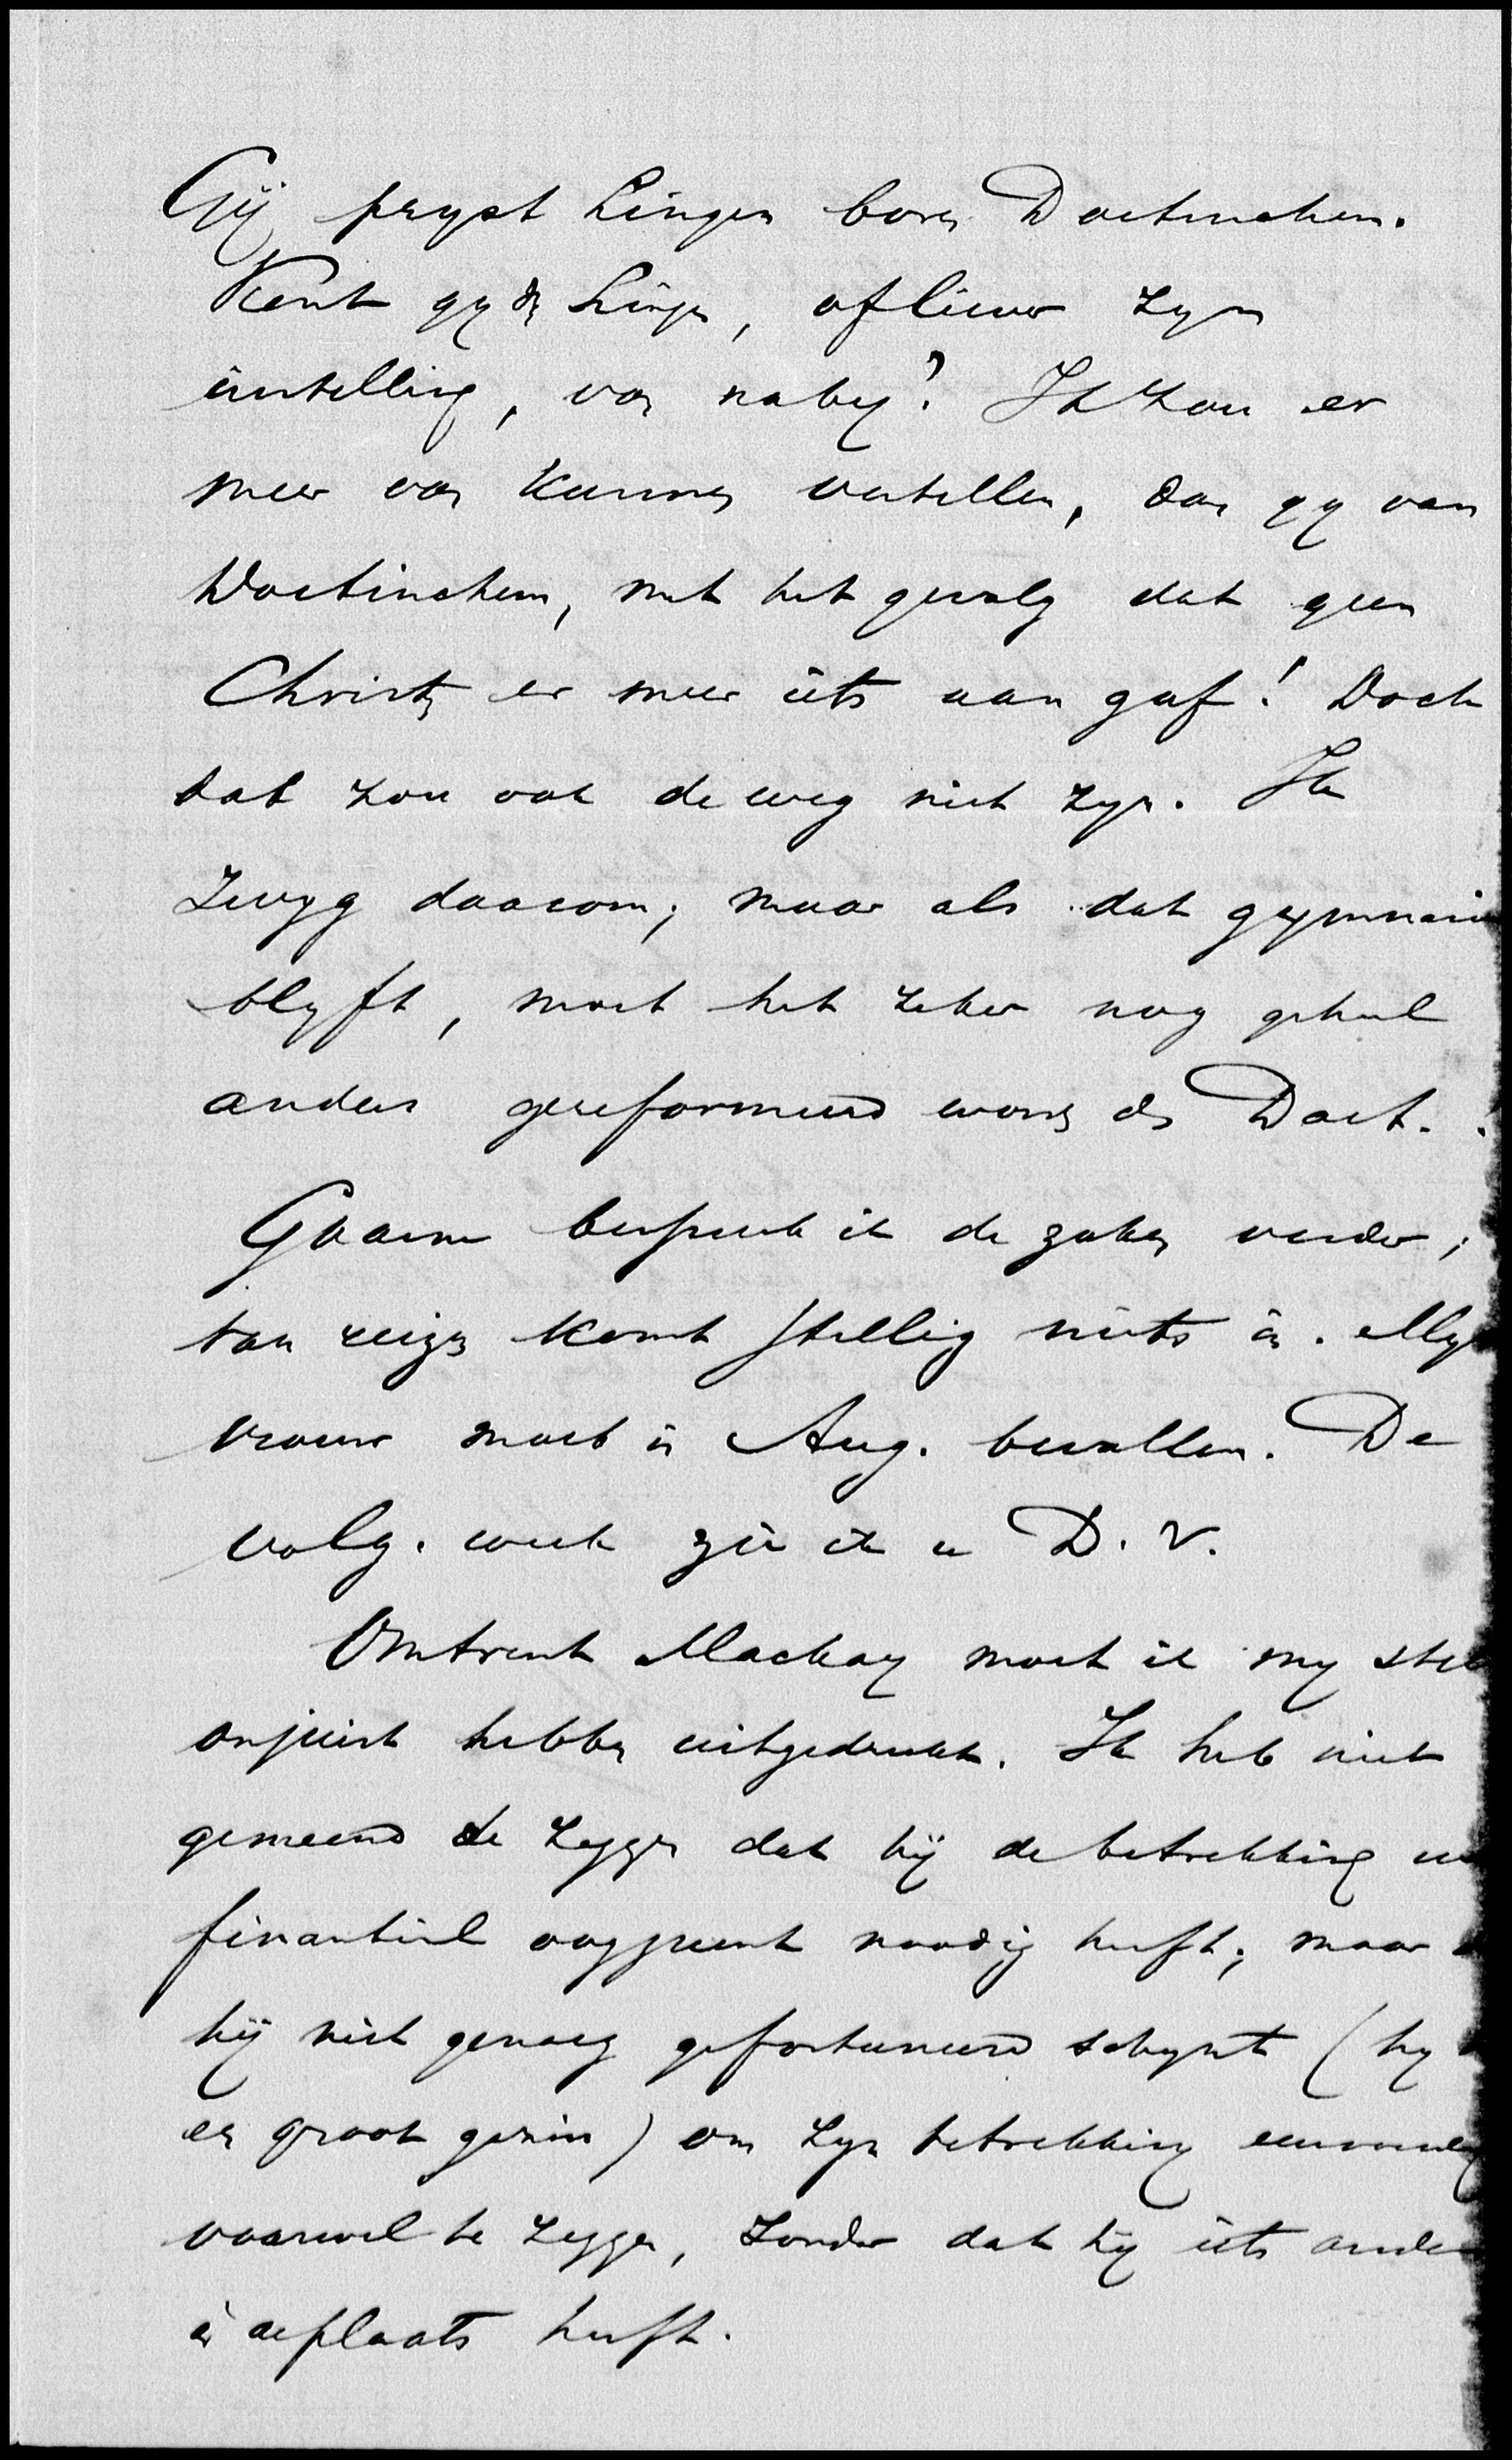 Gij prijst Lingen boven Doetinchem.
Kent gy dr Lingen, of liever zyn
instelling, van naby? Ik zou er
meer van kunnen vertellen, dan gy van
Doetinchem, met het gevolg dat geen
Christen er meer iets aan gaf! Doch
dat zou ook de weg niet zyn. Ik
zwyg daarom; maar als dat gymnasiu
blyft, moet het zeker nog geheel
anders gereformeerd worden dan Doet.
Gaarne bespreek ik de zaken verder;
van reizen komt stellig niets in. Myn
vrouw moet in Aug. bevallen. De
volg. week zie ik u D.V.
Omtrent Mackay moet ik my
onjuist hebben uitgedrukt. Ik heb niet
gemeend te zeggen dat hij de betrekking
financieel oogpunt noodig heeft; maar
hij niet genoeg gefortuneerd schynt (hy
een groot gezin) om zyn betrekking
vaarwel te zeggen, zonder dat hij iets ander
in de plaats heeft.